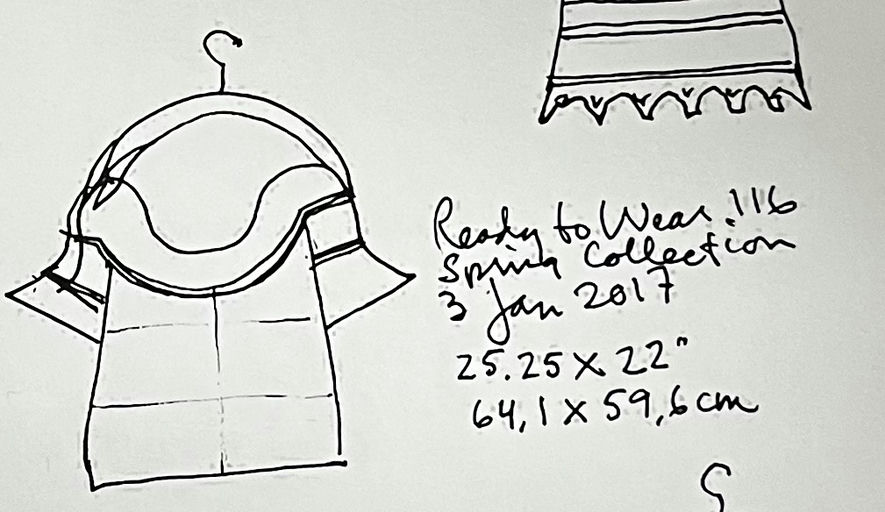 Ready to Wear. 116
Spring Collection
3 Jan 2017
25.25 x 22"
64,1 x 59,6 cm